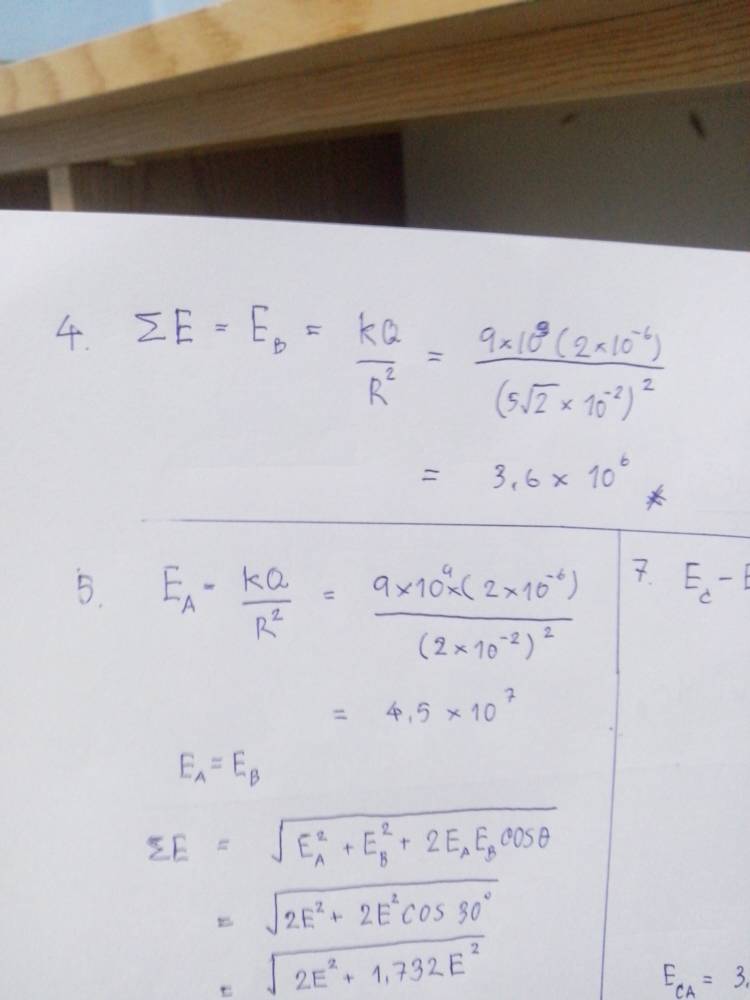 4. ΣE = E_B = kQ/R² = 9×10⁹(2×10⁻⁶)/(5√2×10⁻²)²
= 3,6 × 10⁶
5. E_A - kQ/R² = 9×10⁹×(2×10⁻⁶)/(2×10⁻²)²
= 4,5 × 10⁷
E_A = E_B
ΣE = √(E_A² + E_B² + 2E_A E_B cosθ)
= √(2E² + 2E² cos 30°)
= √(2E² + 1,732E²)
7. E_C - E
E_CA = 3,